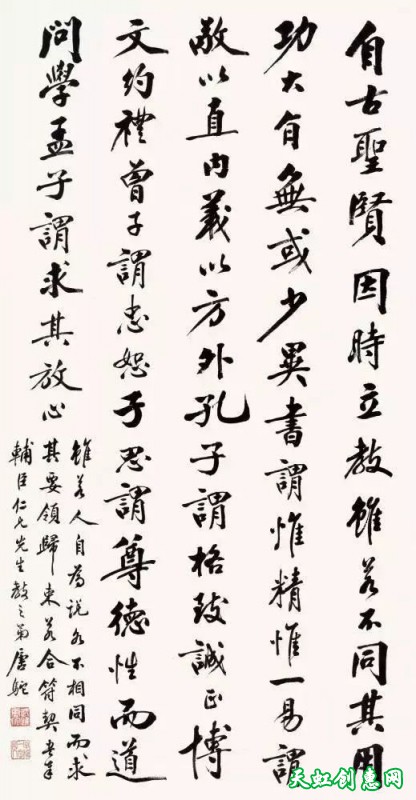 自古聖賢因時立教雖若不同其用
功大旨無或少異書謂惟精惟一易謂
敬以直內義以方外孔子謂格致誠正博
文約禮曾子謂忠恕子思謂尊德性而道
問學孟子謂求其放心
雖若人自為說各不相同而求
其要領歸束若合符契書奉
輔臣仁兄先生教之弟唐駝
天虹创意网